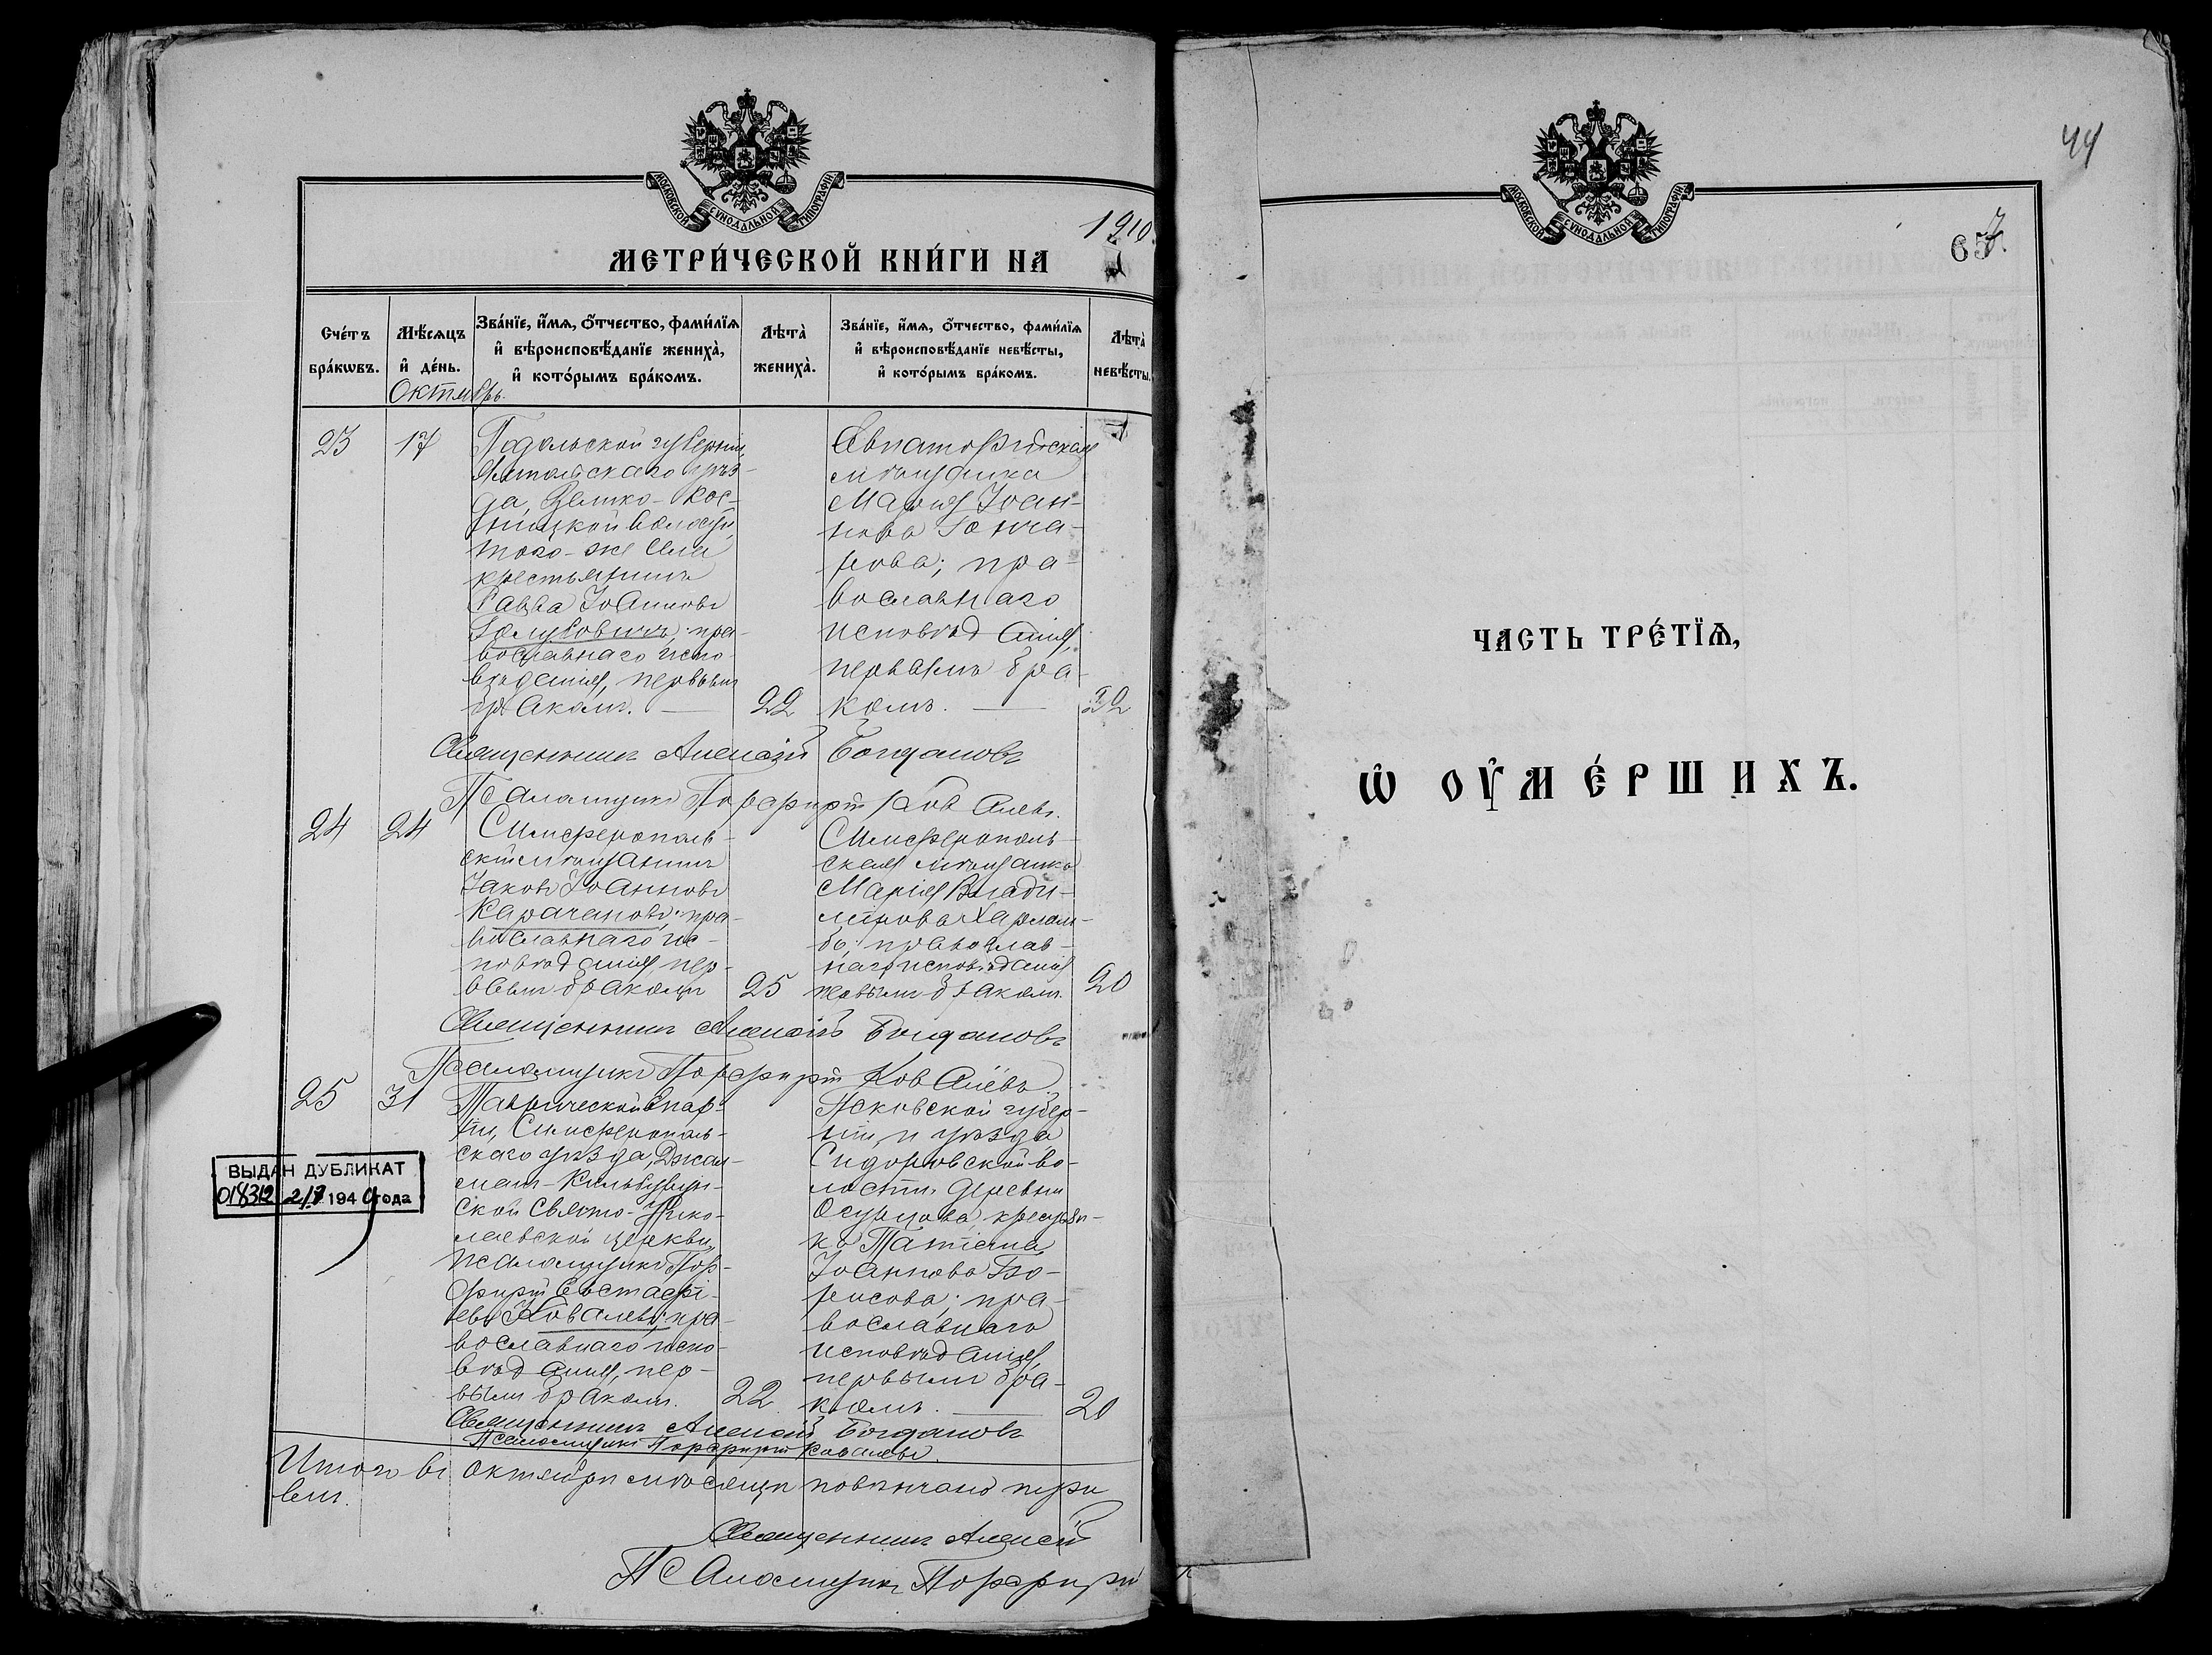 МОСКОВСКОЙ СѴНОДАЛЬНОЙ ТИПОГРАФІИ
1910
МЕТРИ́ЧЕСКОЙ КНИ́ГИ НА
Сче́тъ бра́кѡвъ.
Мѣ́сѧцъ и҆ де́нь.
Зва́нїе, и҆́мѧ, ѻ҆́тчество, фами́лїѧ и҆ вѣроисповѣ́данїе жениха̀, и҆ кото́рымъ бра́комъ.
Лѣта̀ жениха̀.
Зва́нїе, и҆́мѧ, ѻ҆́тчество, фами́лїѧ и҆ вѣроисповѣ́данїе невѣ́сты, и҆ кото́рымъ бра́комъ.
Лѣта̀ невѣ́сты.
Октябрь.
23
17
Подольской губерніи,
уѣз-
да, Велико-Кос-
ницкой волости,
того-же села
крестьянинъ
Савва Іоанновъ
пра-
вославнаго испо-
вѣданія, первымъ
бракомъ.
22
Евпаторійская
мѣщанка
Марія Іоан-
нова Гонча-
рова; пра-
вославнаго
исповѣданія,
первымъ бра-
комъ.
22
Священникъ Алексій Богдановъ
Псаломщикъ Порфирій Ковалевъ.
24
24
Симферополь-
скій мѣщанинъ
Іаковъ Іоанновъ
Карачановъ; пра-
вославнаго ис-
повѣданія, пер-
вымъ бракомъ
25
Симферополь-
ская мѣщанка
Марія Влади-
мірова
православ-
наго исповѣданія
первымъ бракомъ.
20
Священникъ Алексій Богдановъ
Псаломщикъ Порфирій Ковалевъ.
25
31
Таврической Епар-
хіи, Симферополь-
скаго уѣзда,
ской Свято-Нико-
лаевской церкви,
псаломщикъ Пор-
фирій Евстафі-
евъ Ковалевъ; пра-
вославнаго испо-
вѣданія, пер-
вымъ бракомъ.
22
Псковской губер-
ніи, и уѣзда
Сидоровской во-
лости, деревни
крестьян-
ка Татіана
Іоаннова Бо-
рисова; пра-
вославнаго
исповѣданія,
первымъ бра-
комъ.
20
Священникъ Алексій Богдановъ
Псаломщикъ Порфирій Ковалевъ.
Итого въ Октябрѣ мѣсяцѣ повѣнчано
Священникъ Алексій
Псаломщикъ Порфирій
ВЫДАН ДУБЛИКАТ
194 года
44
МОСКОВСКОЙ СѴНОДАЛЬНОЙ ТИПОГРАФІИ
ЧАСТЬ ТРЕ́ТЇѦ,
Ѡ҆ ОУ҆МЕ́РШИХЪ.